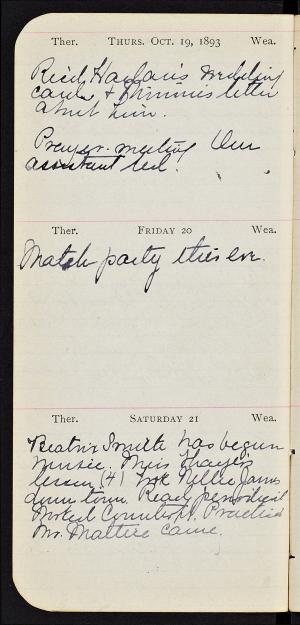 Ther. THURS. OCT. 19, 1893 Wea.
Rec'd Harlan's wedding
cards & Minnie's letter
about him.
Prayer-meeting Our
assistant led.
Ther. FRIDAY 20 Wea.
Match party this eve.
Ther. SATURDAY 21 Wea.
Beatrix Smith has begun
music. Miss Thayer's
lesson (4) Took Nellie James
down town. Read periodical
Worked Counterpt. Practiced
Mr. came.